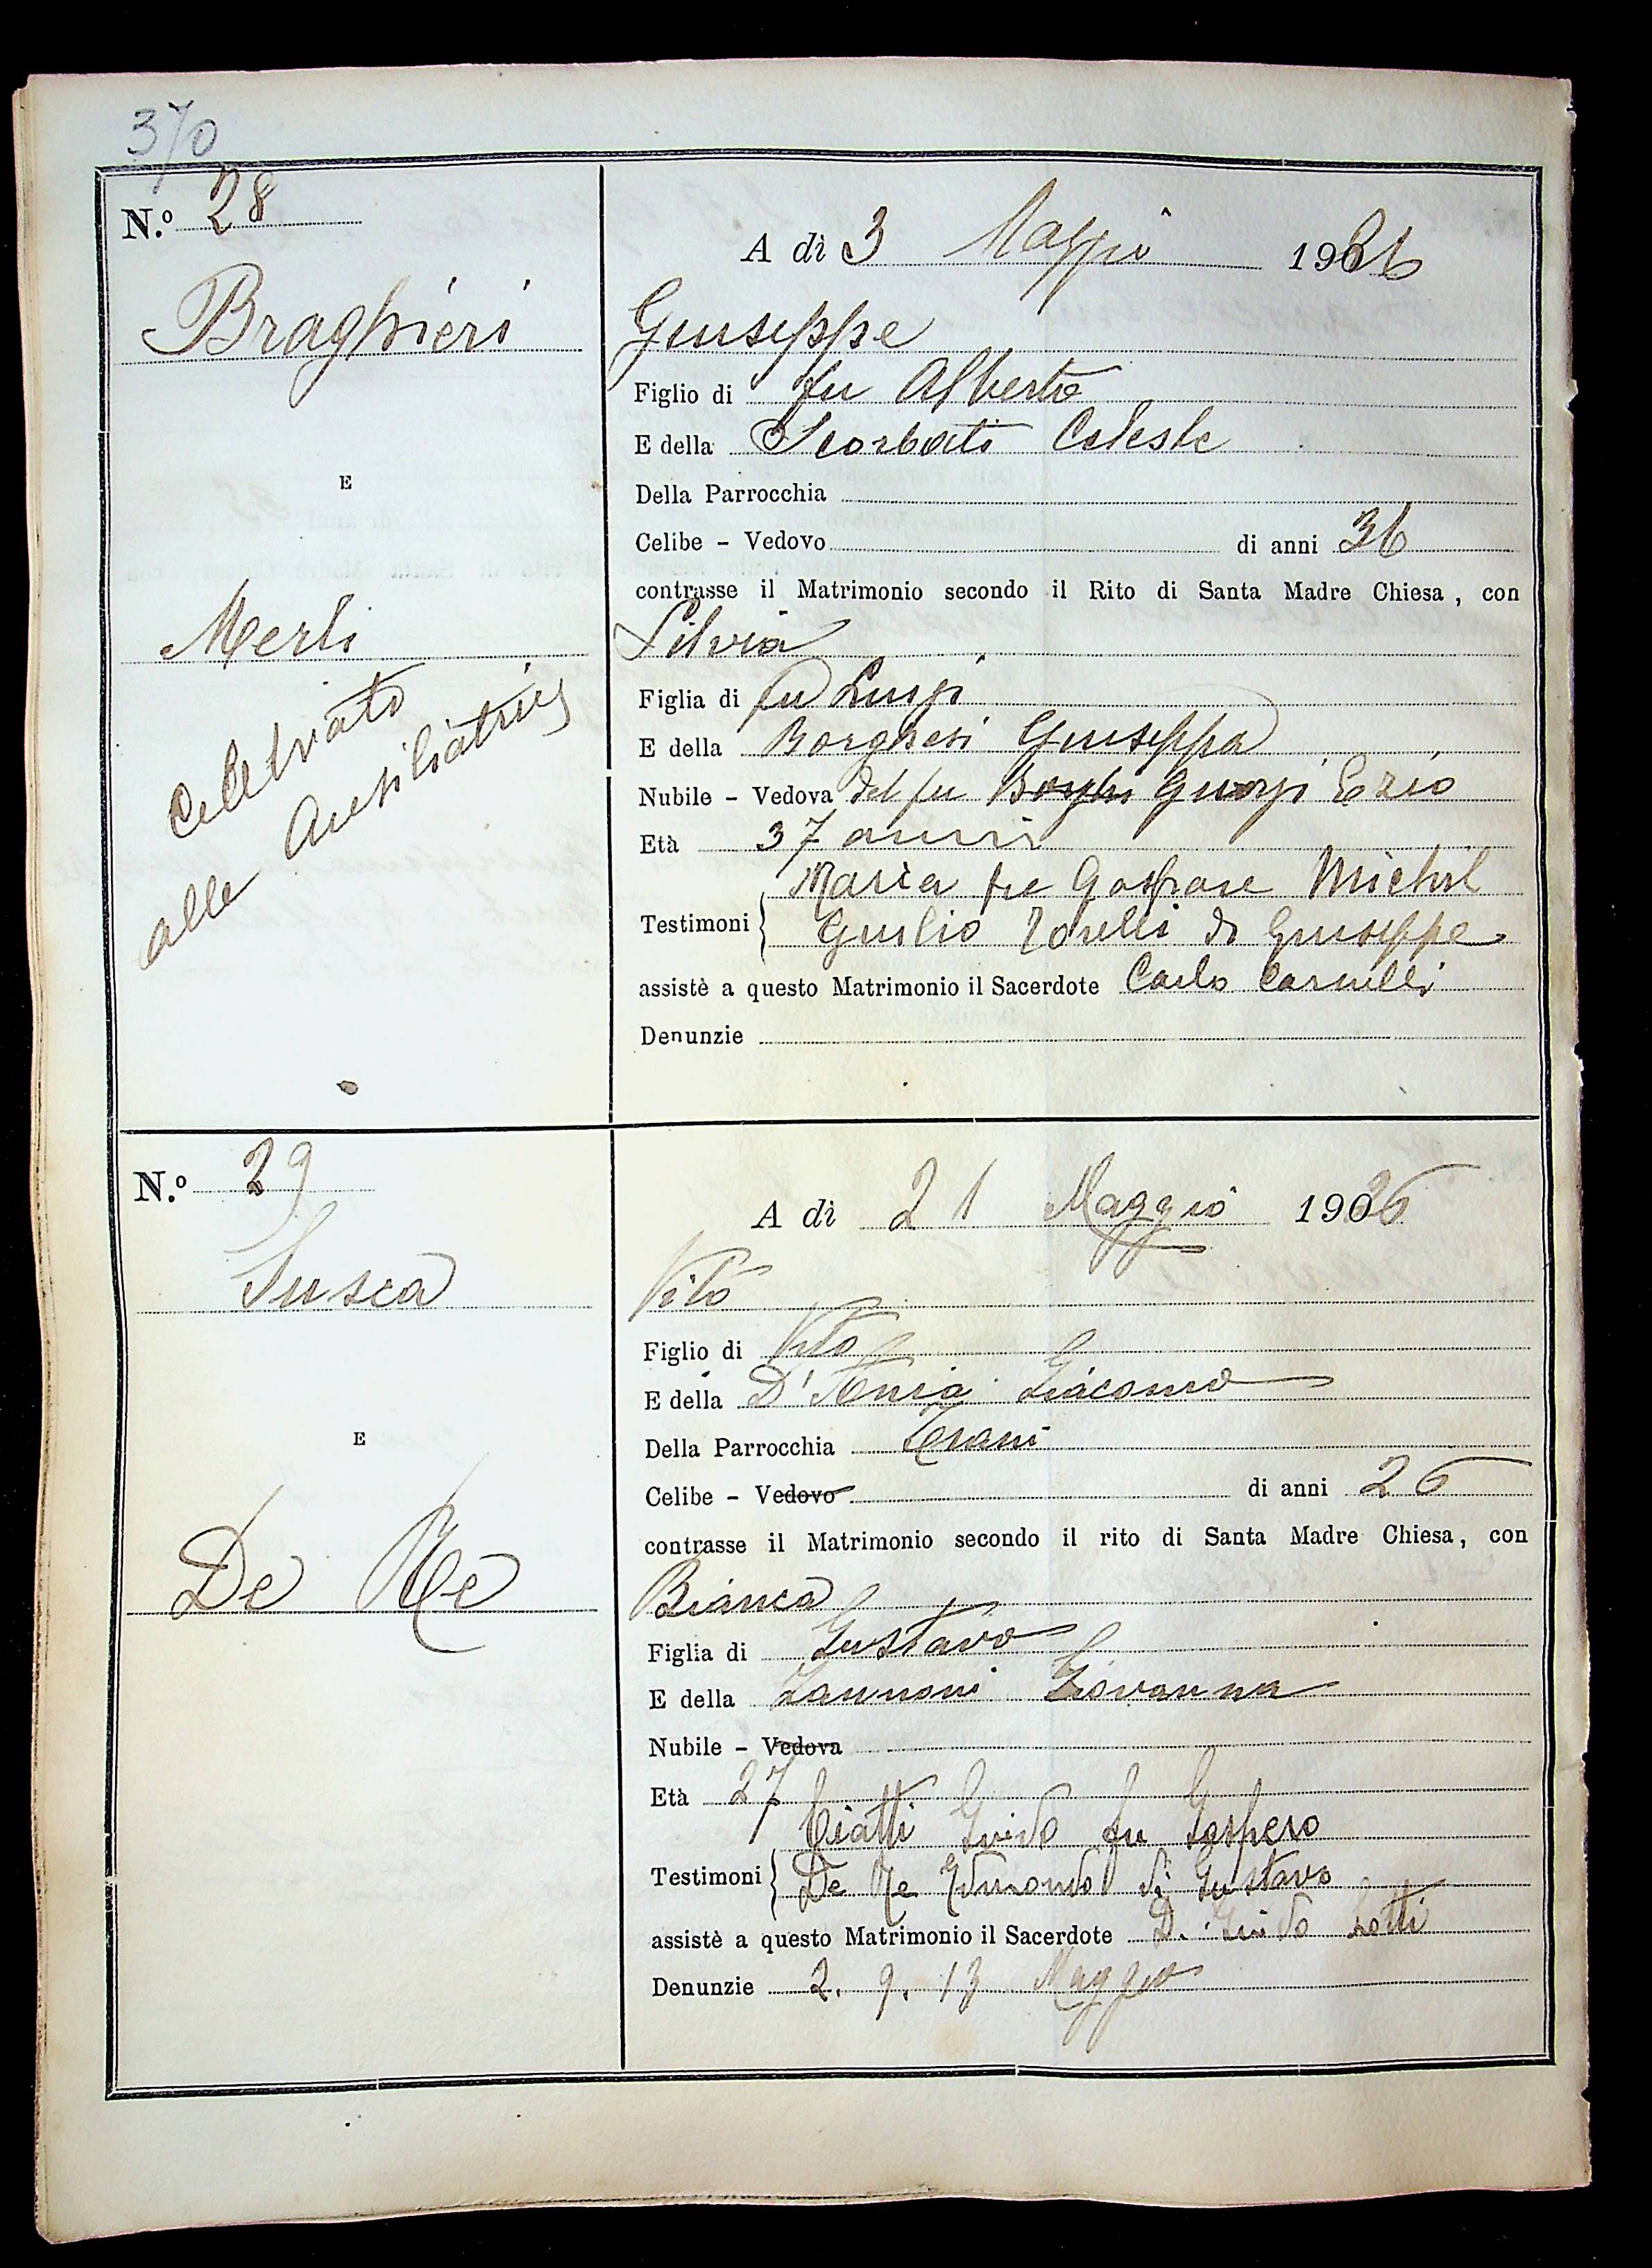 370
N.º 28
A dì 3 Maggio 1926
Braghieri
Giuseppe
Figlio di fu Alberto
E della Scorbati Celeste
E
Della Parrocchia
Celibe - Vedovo di anni 36
contrasse il Matrimonio secondo il Rito di Santa Madre Chiesa, con
Merli
Silvia
celebrato
alle Ausiliatrici
Figlia di fu Luigi
E della Borghesi Giuseppa
Nubile - Vedova del fu Borghi Giorgi Ezio
Età 37 anni
Testimoni { Maria fu Gaspare Michel
Giulio Torelli di Giuseppe
assistè a questo Matrimonio il Sacerdote Carlo
Denunzie
N.º 29
A dì 21 Maggio 1926
Susca
Vito
Figlio di Vito
E della Giacoma
E
Della Parrocchia Trani
Celibe - Vedovo di anni 26
contrasse il Matrimonio secondo il rito di Santa Madre Chiesa, con
De Re
Bianca
Figlia di Gustavo
E della Zannoni Giovanna
Nubile - Vedova
Età 27
Testimoni { Ciatti Guido fu Gaspero
De Re Edmondo di Gustavo
assistè a questo Matrimonio il Sacerdote D. Guido Lotti
Denunzie 2. 9. 13 Maggio